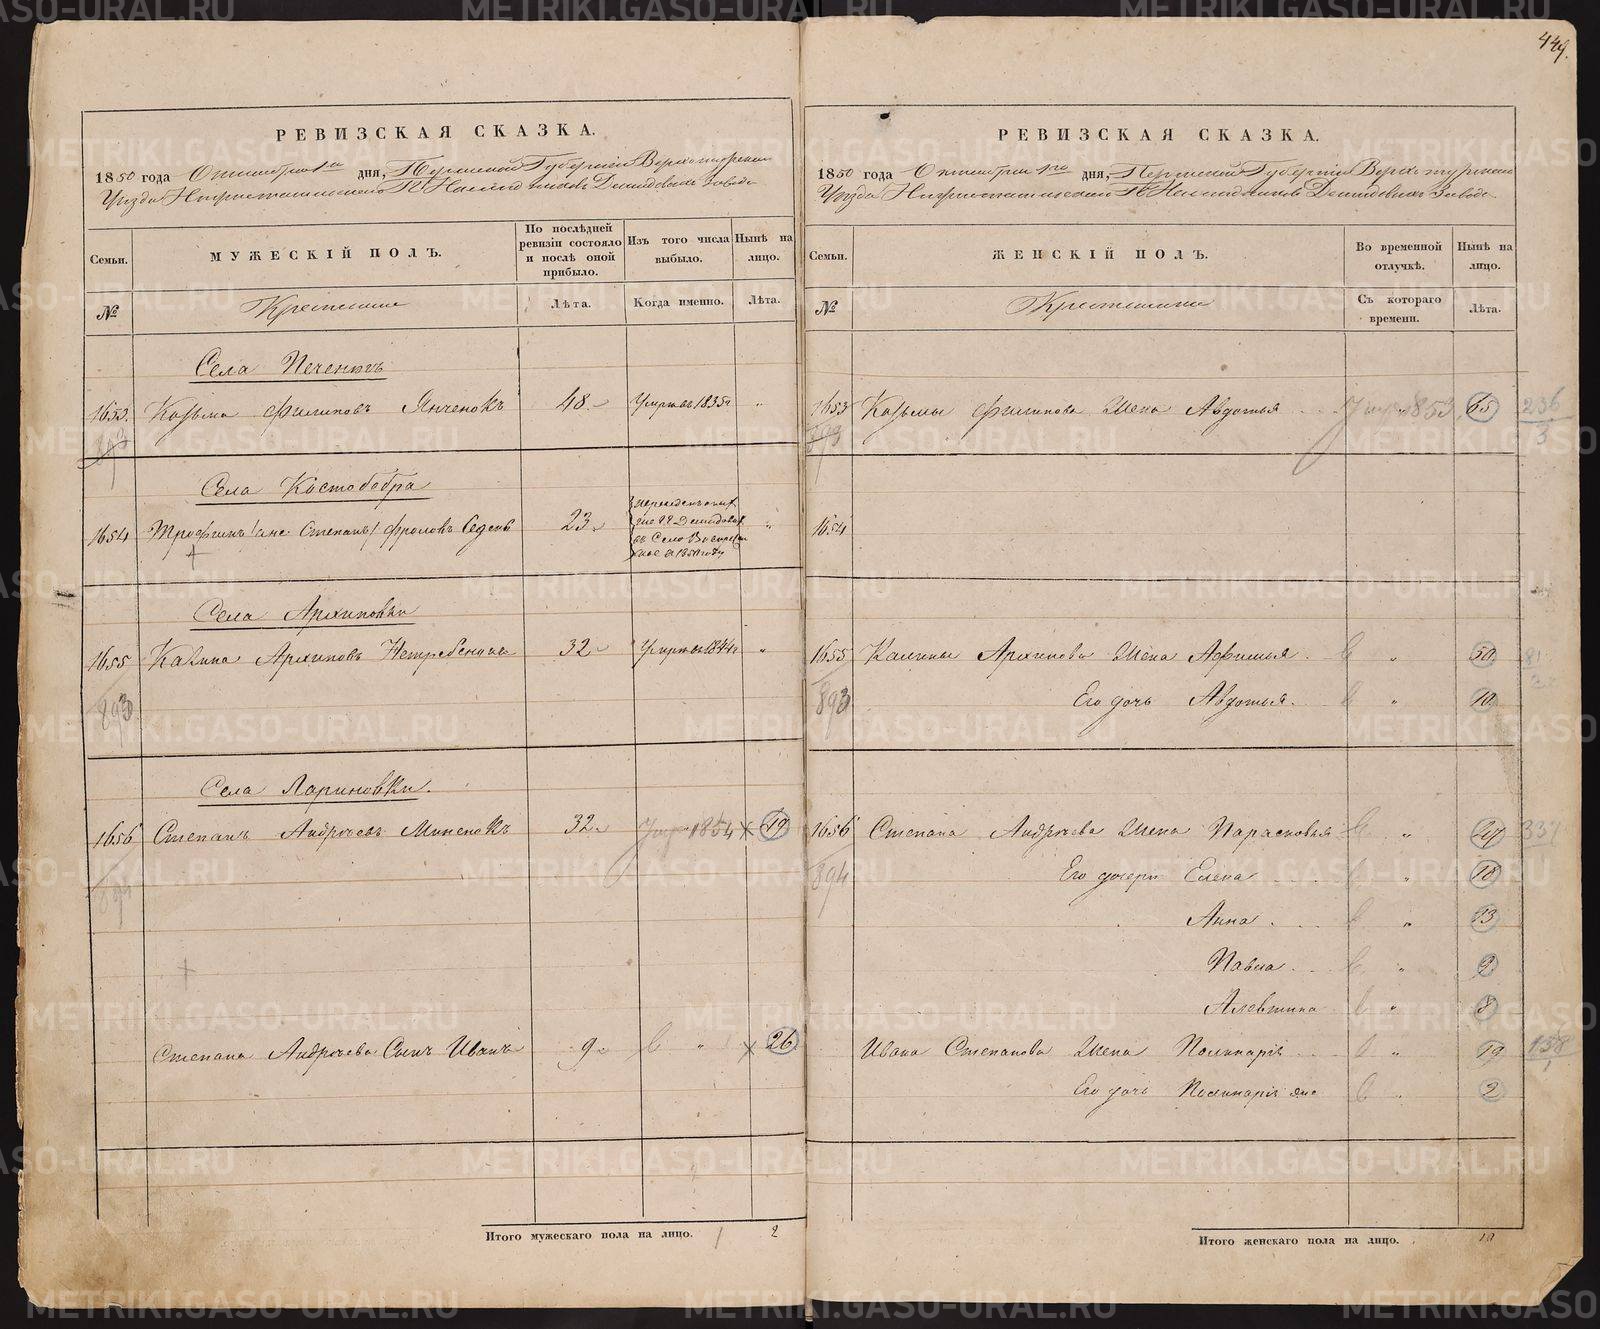 449.
РЕВИЗСКАЯ СКАЗКА.
1850 года Октября 1го дня, Пермской Губерніи Верхотурскаго
Уѣзда Нижнетагильскаго Гг. Наследниковъ Демидовыхъ Завода
Семьи.
МУЖЕСКІЙ ПОЛЪ.
По послѣдней ревизіи состояло и послѣ оной прибыло.
Изъ того числа выбыло.
Нынѣ на лицо.
№
Крестьяне
Лѣта.
Когда именно.
Лѣта.
Села Печениковъ
1653. Козьма Филиповъ Янченокъ 48 Умеръ въ 1835 „
893
Села Костобобра
1654 Трофимъ /а не Степанъ/ Фроловъ Седень 23 „
Села Архиповки
1655 Калина Архиповъ Нетребенко 32 Умеръ въ 1844 „
893
Села Лариновки.
1656 Степанъ Андреевъ Миненокъ 32 Умеръ 1854 49
894
Степана Андреева Сынъ Иванъ 9 „ 26
Итого мужескаго пола на лицо. 2
РЕВИЗСКАЯ СКАЗКА.
1850 года Октября 1го дня, Пермской Губерніи Верхотурскаго
Уѣзда Нижнетагильскаго Гг. Наследниковъ Демидовыхъ Завода
Семьи.
ЖЕНСКІЙ ПОЛЪ.
Во временной отлучкѣ.
Нынѣ на лицо.
№
Крестьянки
Съ котораго времени.
Лѣта.
1653 Козьмы Филипова Жена Авдотья Умер 1853 65 236
893 3
1654
1655 Калины Архипова Жена Афимья „ 50 81
893 Его дочь Авдотья „ 10
1656 Степана Андреева Жена Парасковья „ 47 337
894 Его дочери Елена „ 18
Анна „ 13
Павла „ 9
Алевтина „ 8
Ивана Степанова Жена Полинарія „ 19 158
Его дочь Полинарія же „ 2
Итого женскаго пола на лицо. 10
METRIKI.GASO-URAL.RU